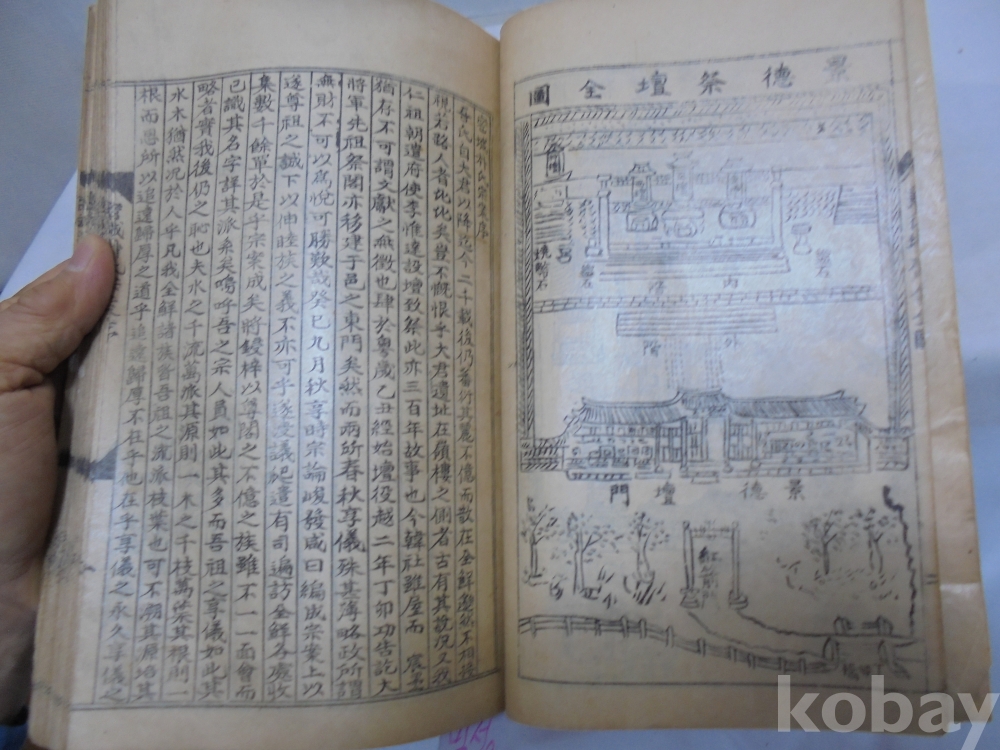 景德祭壇全圖
內階
外階
景德壇門
紅箭
朴氏宗案序
朴氏自大君以降迄今二千載後仍蕃衍其麗不億而散在全鮮邈然不相接
視若路人者比比矣豈不慨恨乎大君遺址在嶺樓之側者古有其說況又我
仁祖朝遣府使李惟達設壇致祭此亦三百年故事也今韓社雖屋而宸
猶存不可謂文獻之無徵也肆於粤歲乙丑經始壇役越二年丁卯功告訖大
將軍先祖祭閣亦移建于邑之東門矣然而兩所春秋享儀殊甚薄略政所謂
無財不可以爲悅可勝歎哉癸巳九月秋享時宗論峻發咸曰編成宗案上以
遂尊祖之誠下以伸睦族之義不亦可乎遂發議起遣有司遍訪全鮮各處收
集數千餘單於是乎宗案成矣將鋟梓以尊閣之不億之族雖不一一面會而
已識其名字詳其派系矣嗚呼吾之宗人員如此其多而吾祖之享儀如此其
略者實我後仍之恥也夫水之千流萬派其源則一木之千枝萬葉其根則一
水木猶然況於人乎凡我全鮮諸族皆吾祖之流派枝葉也可不溯其源培其
根而思所以追遠歸厚之道乎追遠歸厚不在乎他在乎享儀之永久享儀之
kobay